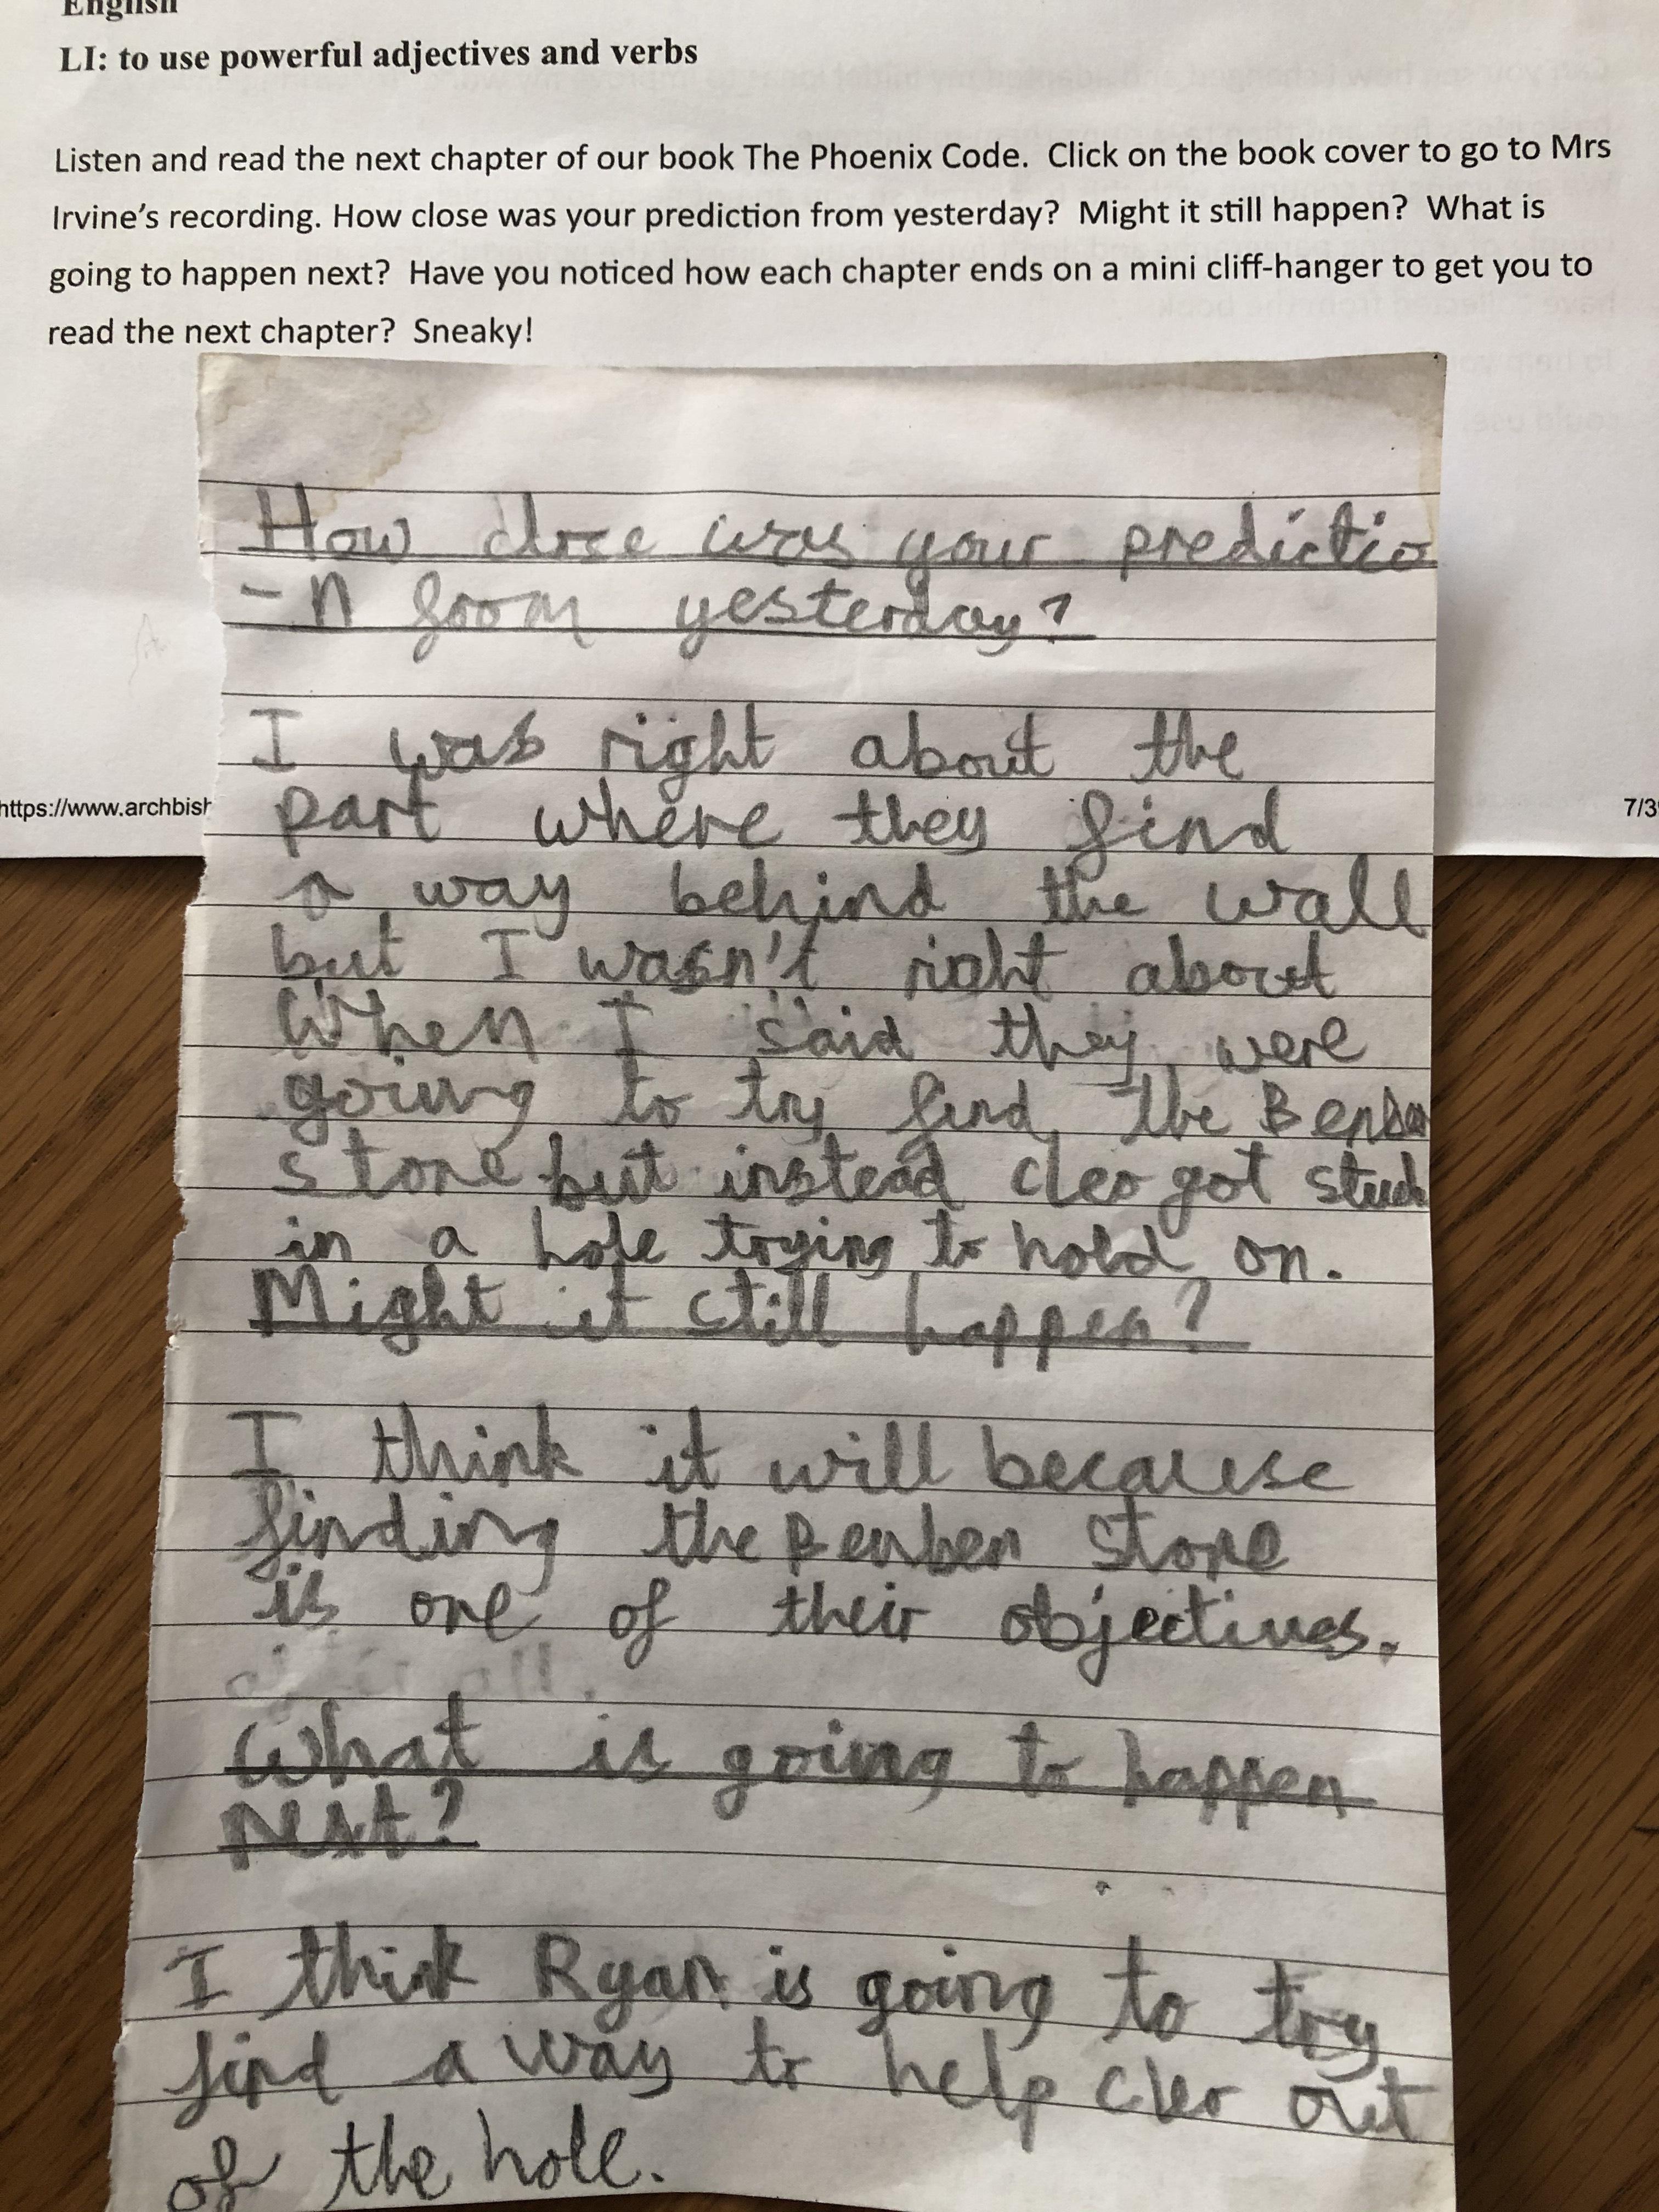 English
LI: to use powerful adjectives and verbs
Listen and read the next chapter of our book The Phoenix Code.  Click on the book cover to go to Mrs
Irvine's recording. How close was your prediction from yesterday?  Might it still happen?  What is
going to happen next?  Have you noticed how each chapter ends on a mini cliff-hanger to get you to
read the next chapter?  Sneaky!
How close was your predictio
-n from yesterday?
I was right about the
part where they find
a way behind the wall
but I wasn't right about
When I said they were
going to try find the Benben
stone but instead cleo got stuck
in a hole trying to hold on.
Might it still happen?
I think it will because
finding the Benben stone
is one of their objectives.
What is going to happen
next?
I think Ryan is going to try
find a way to help cleo out
of the hole.
https://www.archbish
7/3